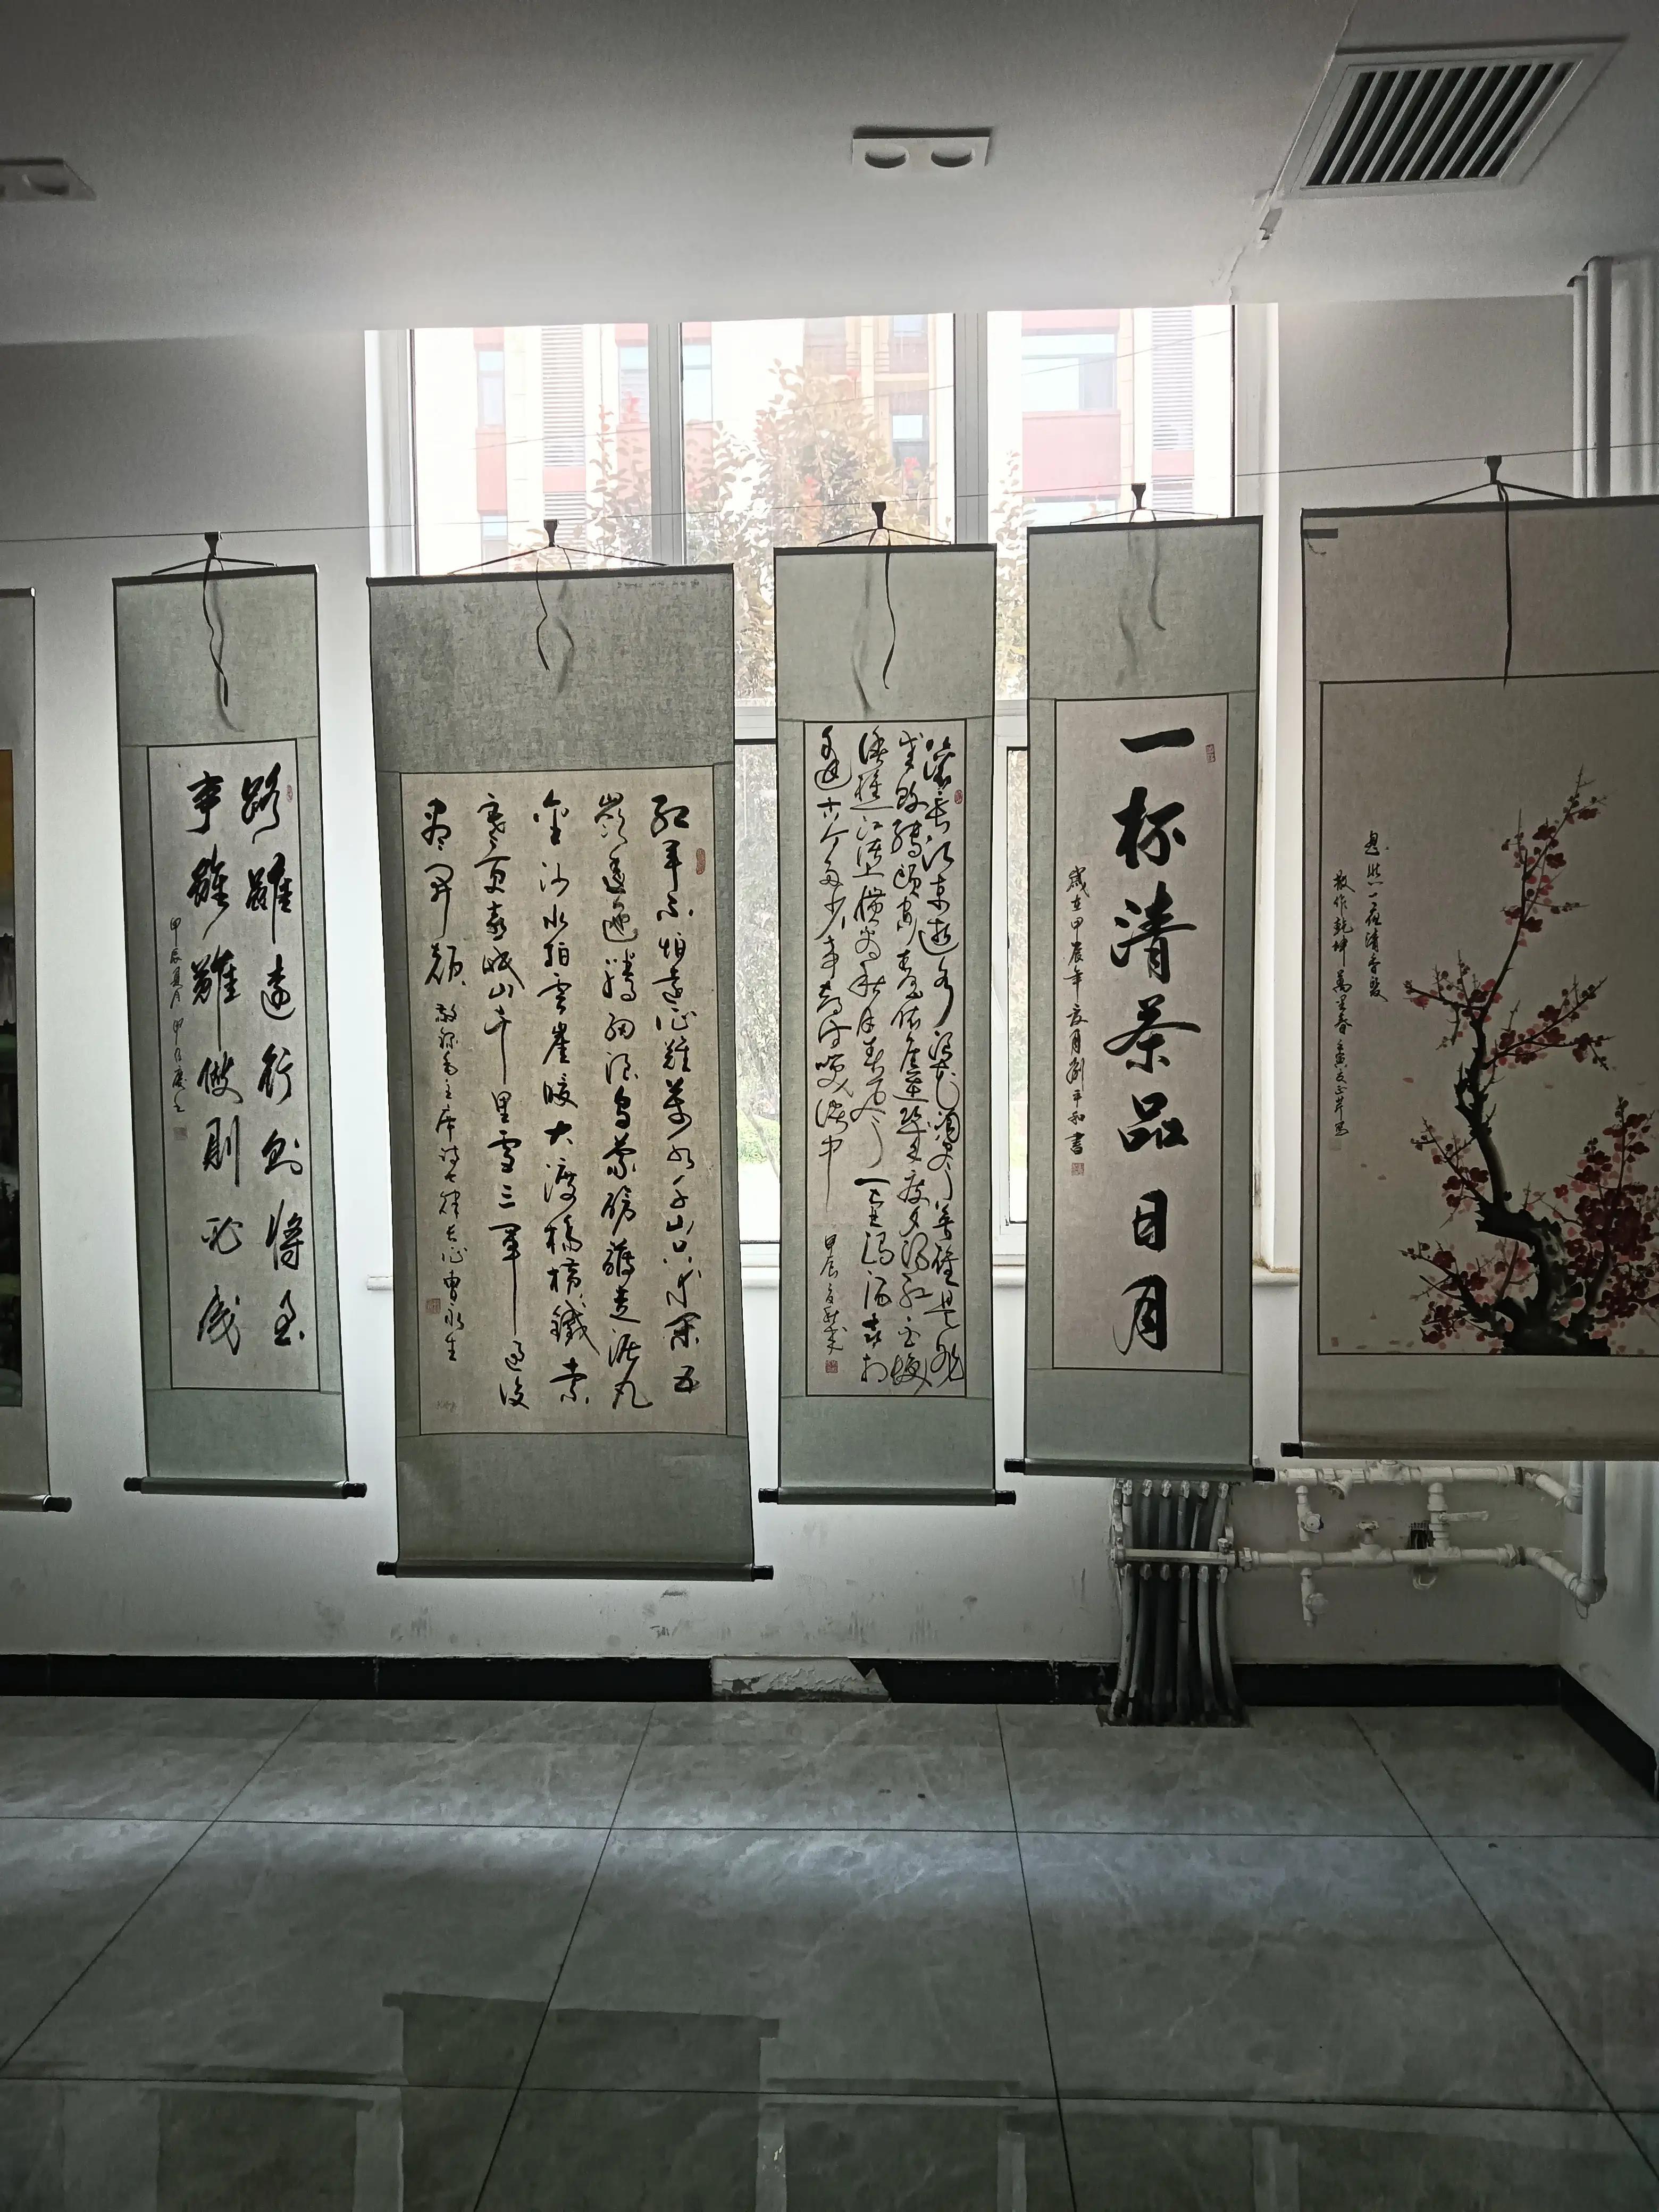 路雖遠行則將至
事雖難做則必成
甲辰夏月
紅軍不怕遠征難萬水千山只等閑五
嶺逶迤騰細浪烏蒙磅礴走泥丸
金沙水拍雲崖暖大渡橋橫鐵索
寒更喜岷山千里雪三軍過後
盡開顏
敬錄毛主席詩七律長征曹永生
滚滚長江東逝水浪花淘盡英雄是非
成敗轉頭空青山依舊在幾度夕陽紅白髮
漁樵江渚上慣看秋月春風一壺濁酒喜相
逢古今多少事都付笑談中
甲辰
一杯清茶品日月
歲在甲辰年夏月劉平和書
忽然一夜清香發
散作乾坤萬里春